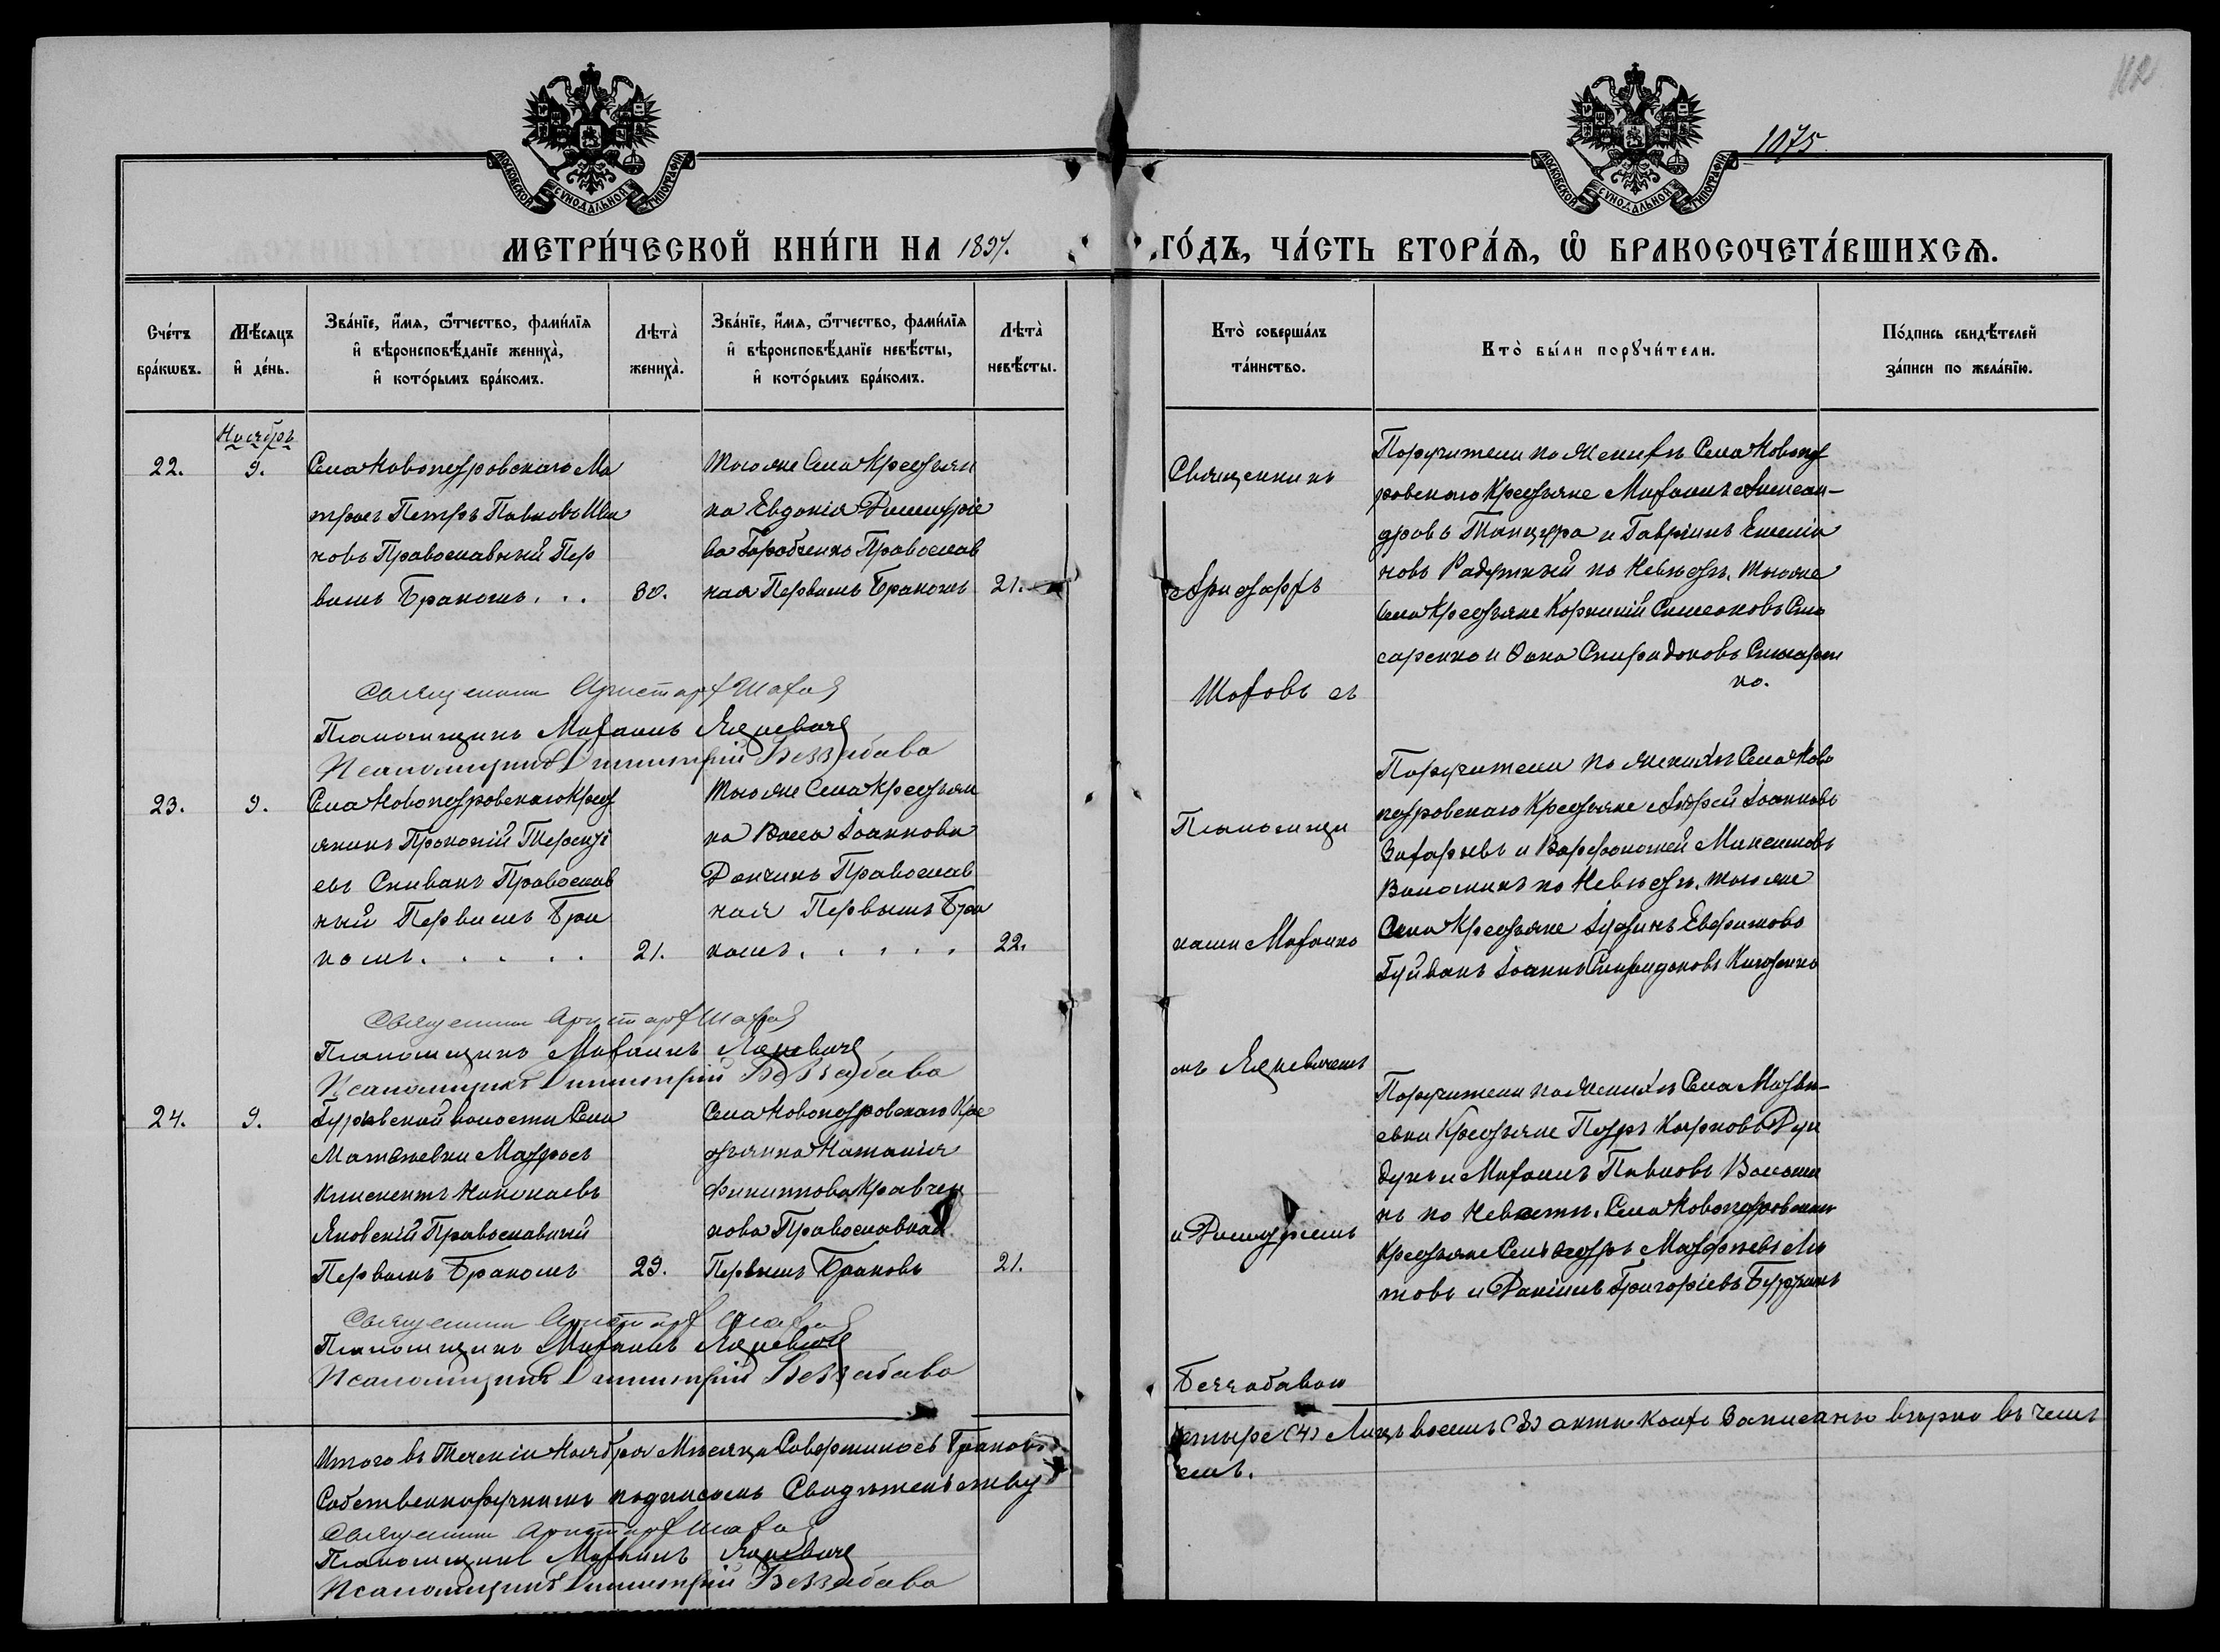 112
1075
МОСКОВСКОЙ СѴНОДАЛЬНОЙ ТИПОГРАФІИ
МОСКОВСКОЙ СѴНОДАЛЬНОЙ ТИПОГРАФІИ
МЕТРИ́ЧЕСКОЙ КНИ́ГИ НА 1897.
ГО́ДЪ, ЧА́СТЬ ВТОРА́Ѧ, Ѽ БРАКОСОЧЕТА́ВШИХСѦ.
Сче́тъ бра́кѡвъ.
Мѣ́сяцъ и҆ де́нь.
Зва́нїе, и҆́мѧ, ѻ҆́тчество, фами́лїѧ и҆ вѣроисповѣ́данїе женихà, и҆ кото́рымъ бра́комъ.
Лѣтà женихà.
Зва́нїе, и҆́мѧ, ѻ҆́тчество, фами́лїѧ и҆ вѣроисповѣ́данїе невѣ́сты, и҆ кото́рымъ бра́комъ.
Лѣтà невѣ́сты.
Кто̀ соверша́лъ та́инство.
Кто̀ бы́ли порꙋчи́тели.
По́дпись свидѣ́телей за́писи по жела́нїю.
Ноябрь
22.
9.
Села Новопетровскаго Ма
тросъ Петръ Павловъ Ива
новъ Православный Пер
вымъ Бракомъ . . .
30.
Тогоже Села Крестьян
ка Евдокія Димитріе
ва Горобченко Православ
ная Первымъ Бракомъ
21.
Священникъ
Аристархъ
Шаховъ съ
Поручители по Женихѣ Села Новопет
ровскаго Крестьяне Михаилъ Алексан-
дровъ Танцура и Гавріилъ Емелиа
новъ Радутный по Невѣстѣ, тогоже
Села Крестьяне Корнилій Симеоновъ Слю
саренко и Ѳома Спиридоновъ Слюсарен
ко.
Священникъ Аристархъ Шаховъ
Псаломщикъ Михаилъ Яцкевичъ
Псаломщикъ Димитрій Беззабава
23.
9.
Села Новопетровскаго Крест
янинъ Прокопій Терентi
евъ Спиванъ Православ
ный Первымъ Бра
комъ. . . . .
21.
Тогоже Села Крестьян
ка Васса Іоаннова
Дончикъ Православ
ная Первымъ Бра
комъ. . . . .
22.
Псаломщи
ками Михаило
мъ Яцкевичемъ
Поручители по Женихѣ Села Ново
петровскаго Крестьяне Андрей Іоанновъ
Захарьевъ и Варфоломей Максимовъ
Волошинъ по Невѣстѣ, тогоже
Села Крестьяне Іустинъ Евфимовъ
Гуйванъ Іоаннъ Спиридоновъ
Священникъ Аристархъ Шаховъ
Псаломщикъ Михаилъ Яцкевичъ
Псаломщикъ Димитрій Беззабава
24.
9.
Гурьевской волости Села
Матвѣевки Матросъ
Климентъ Николаевъ
Яновскій Православный
Первымъ Бракомъ
29.
Села Новопетровскаго Кре
стьянка Наталія
Филиппова Кравчен
кова Православная
Первымъ Бракомъ
21.
и Димитріемъ
Беззабавою
Поручители по Женихѣ Села Матвѣ-
евки Крестьяне Петръ Карповъ Руи
дукъ и Михаилъ Павловъ Волоши
нъ по Невѣстѣ, Села Новопетровскаго
Крестьяне Матфѣевъ Ми
товъ и Даніилъ Григоріевъ
Священникъ Аристархъ Шаховъ
Псаломщикъ Михаилъ Яцкевичъ
Псаломщикъ Димитрій Беззабава
Итого въ Теченіи Ноября Мѣсяца Совершилось Браковъ
четыре (4) Лицъ восемь (8) акты коихъ Записаны вѣрно въ чемъ
Собственноручнымъ подписомъ Свидѣтельству
емъ.
Священникъ Аристархъ Шаховъ
Псаломщикъ Михаилъ Яцкевичъ
Псаломщикъ Димитрій Беззабава